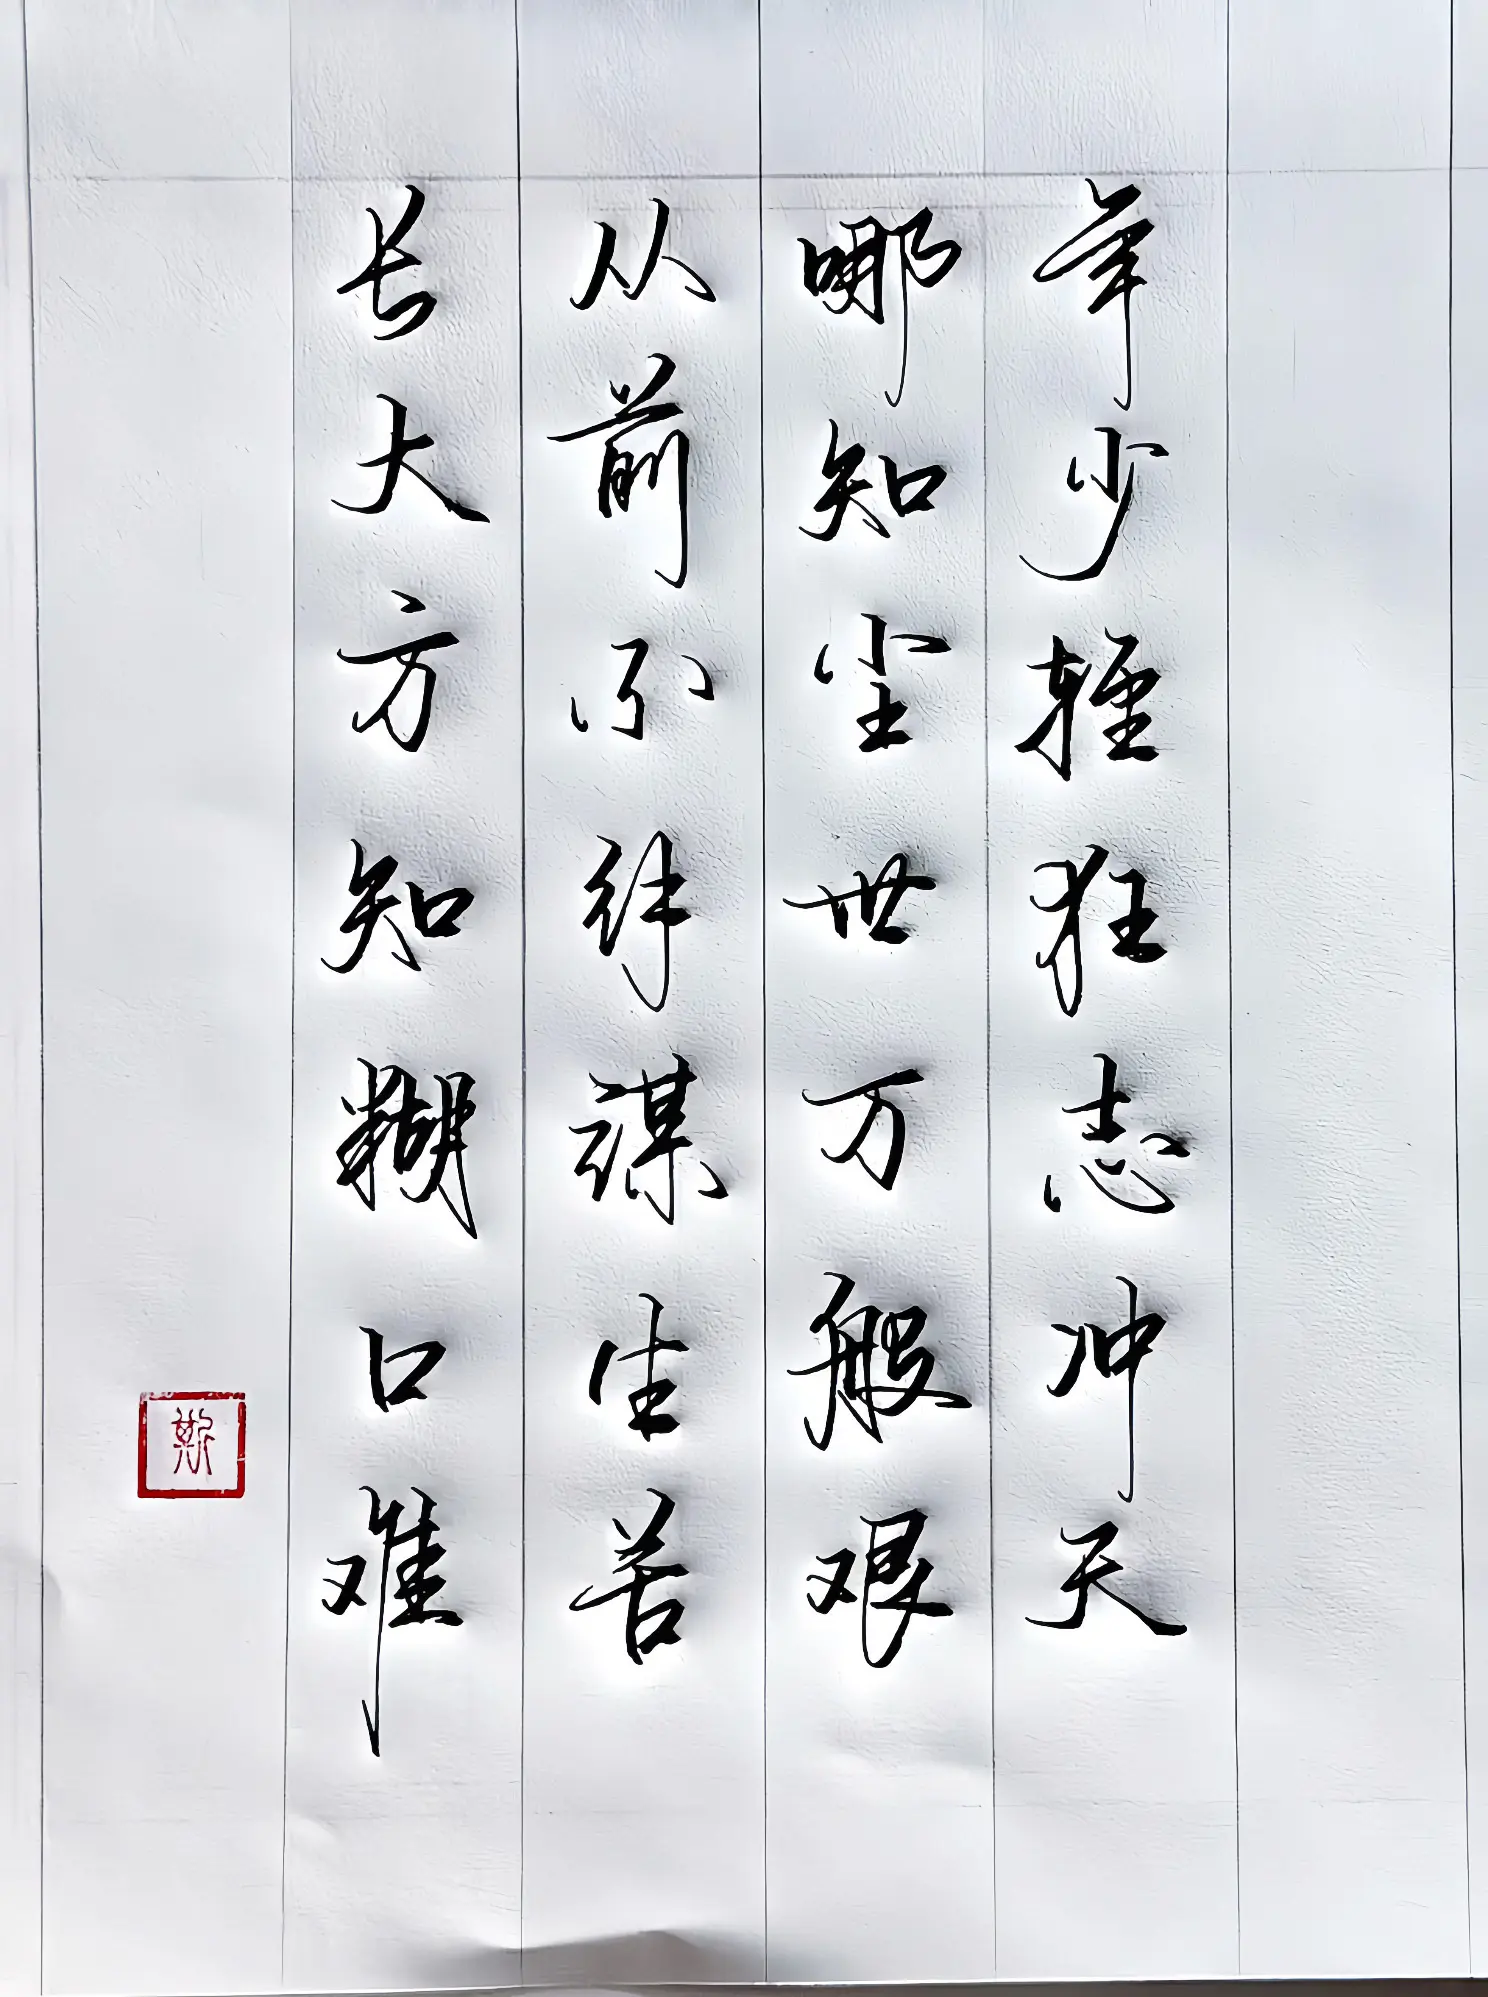 年少轻狂志冲天
哪知尘世万般艰
从前不纬谋生苦
长大方知糊口难
斯